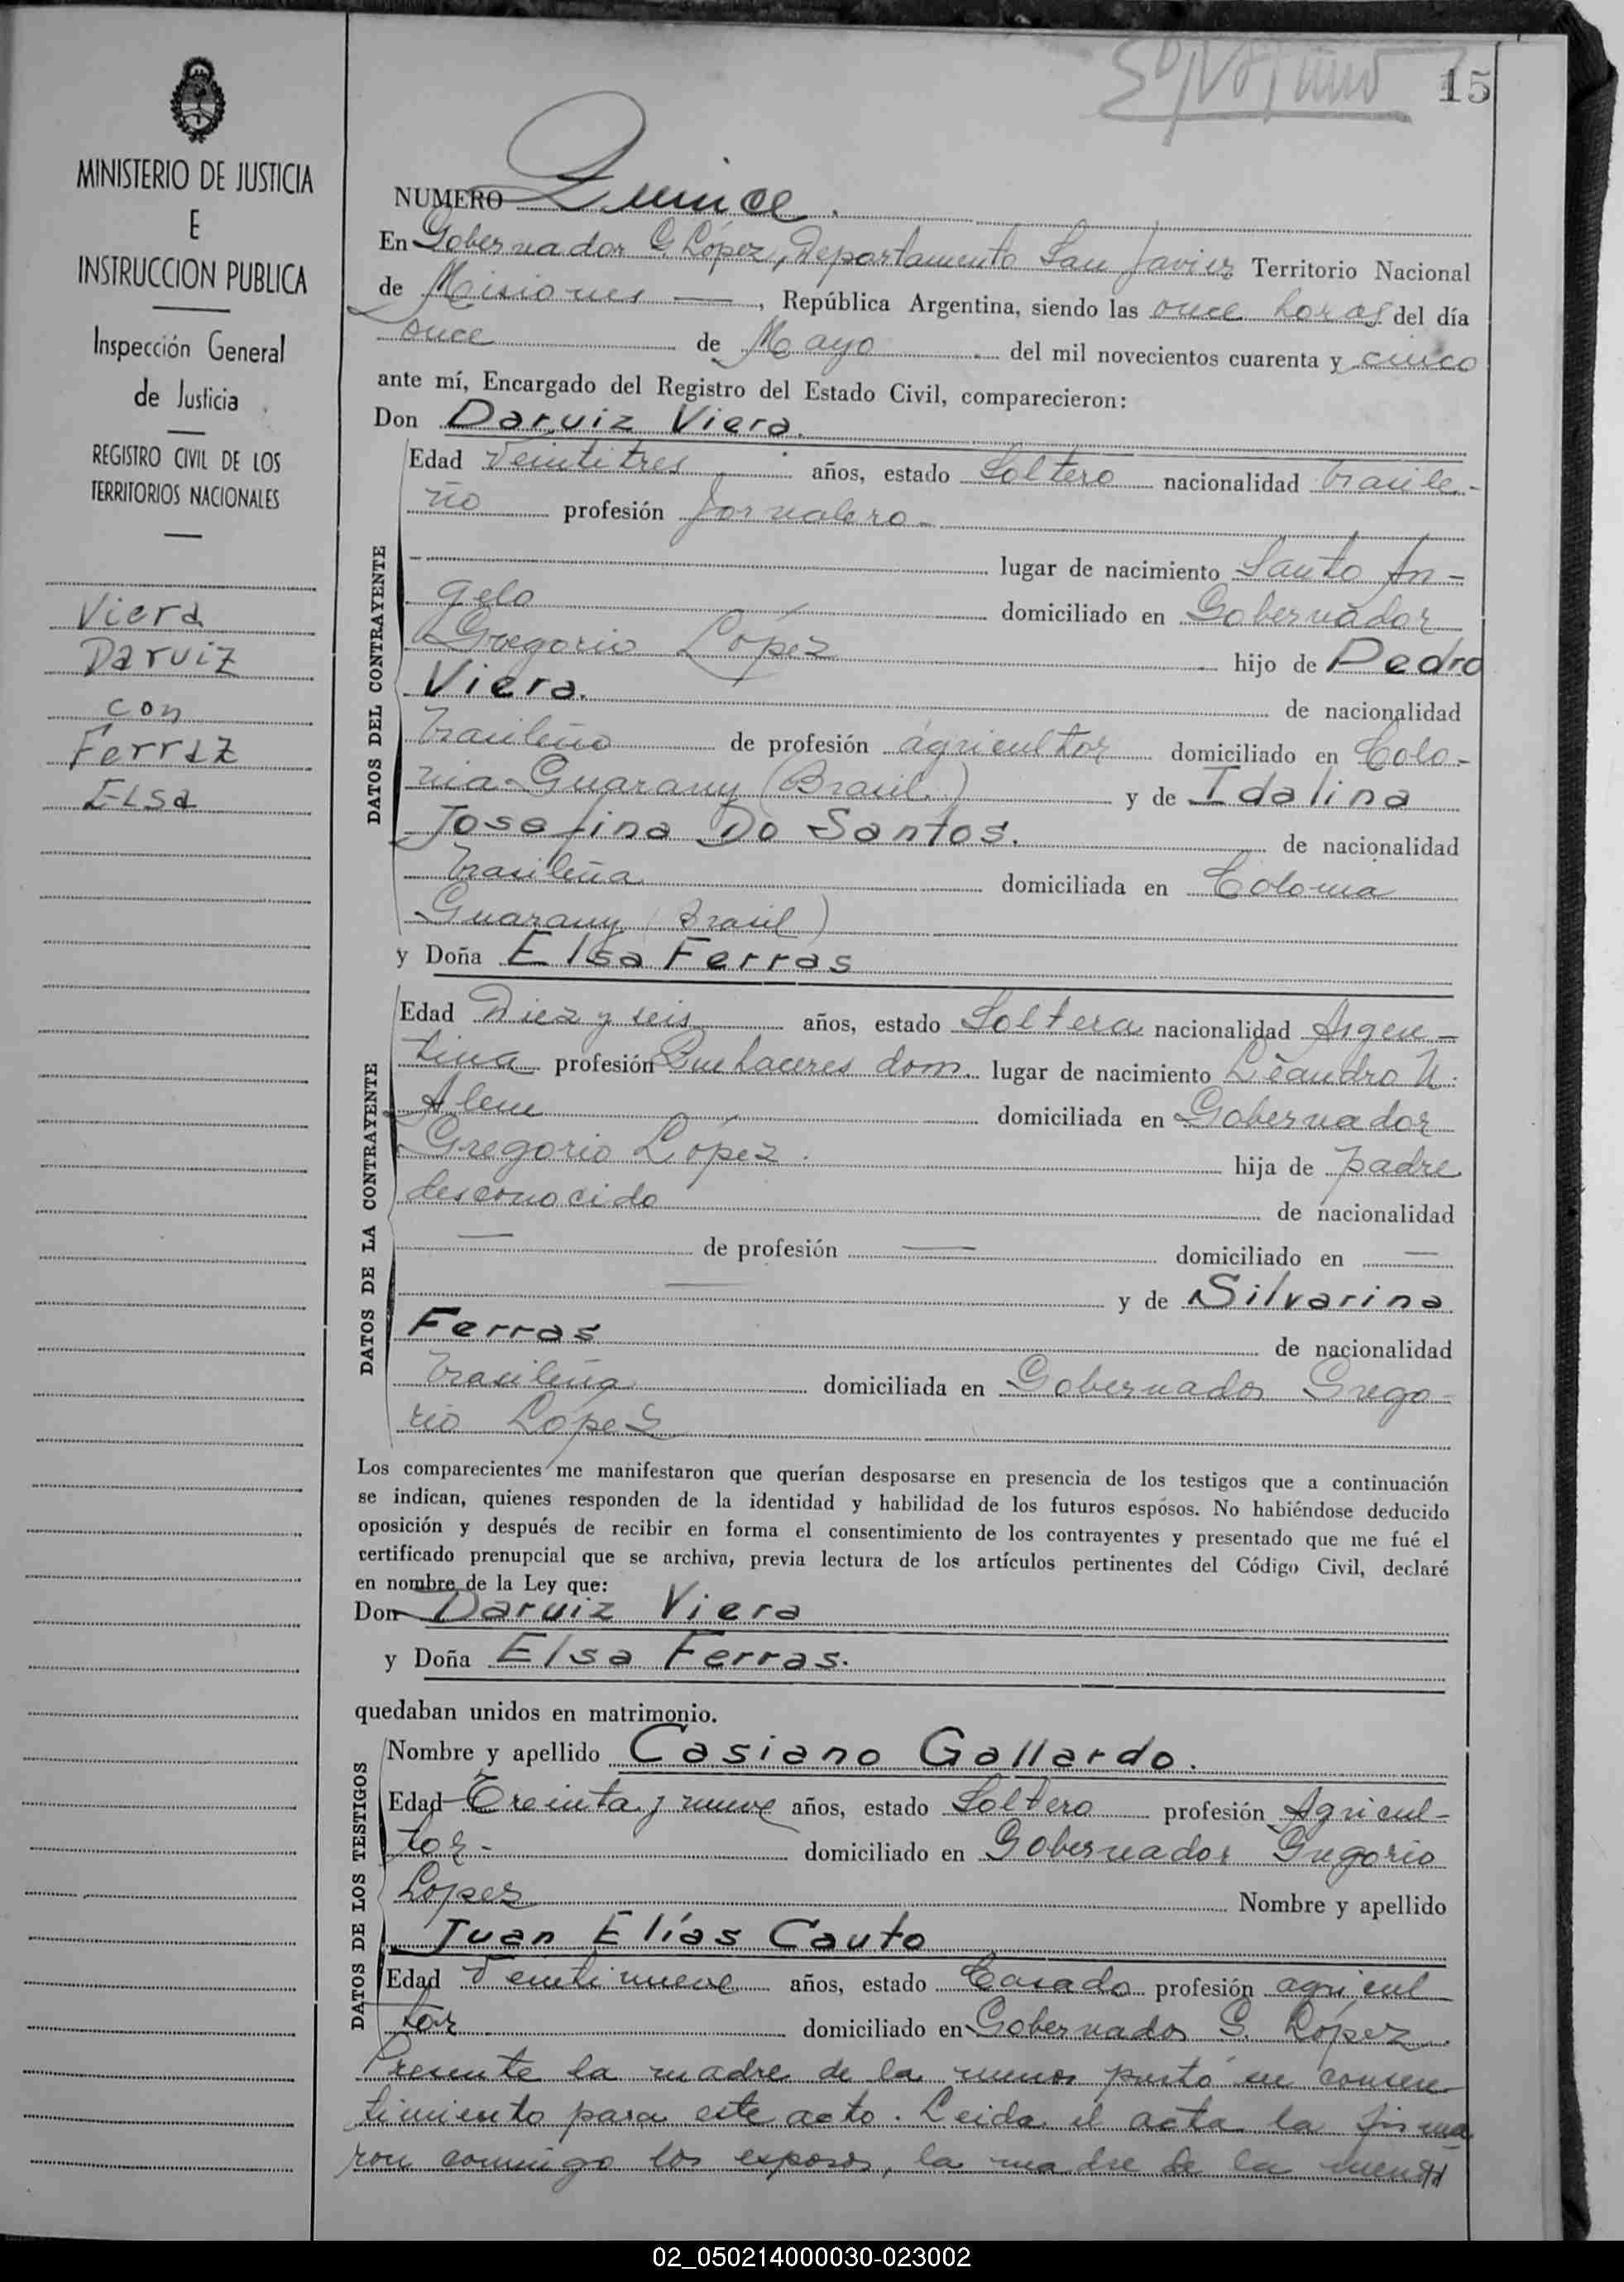 15
MINISTERIO DE JUSTICIA
E
INSTRUCCION PUBLICA
Inspección General
de Justicia
REGISTRO CIVIL DE LOS
TERRITORIOS NACIONALES
Viera
Daruiz
con
Ferraz
Elsa
NUMERO Quince.
En Gobernador G. López, Departamento San Javier Territorio Nacional
de Misiones —, República Argentina, siendo las once horas del día
once de Mayo del mil novecientos cuarenta y cinco
ante mí, Encargado del Registro del Estado Civil, comparecieron:
Don Daruiz Viera.
DATOS DEL CONTRAYENTE
Edad Veintitres años, estado Soltero nacionalidad brasile-
ño profesión Jornalero-
lugar de nacimiento Santo An-
gelo domiciliado en Gobernador
Gregorio López hijo de Pedro
Viera. de nacionalidad
brasileño de profesión agricultor domiciliado en Colo-
nia Guarany (Brasil.) y de Idalina
Josefina Do Santos. de nacionalidad
brasileña domiciliada en Colonia
Guarany (Brasil)
y Doña Elsa Ferras
DATOS DE LA CONTRAYENTE
Edad Diez y seis años, estado Soltera nacionalidad Argen-
tina profesión Quehaceres dom. lugar de nacimiento Leandro N.
Alem domiciliada en Gobernador
Gregorio López. hija de padre
desconocido de nacionalidad
— de profesión — domiciliado en —
— y de Silvarina
Ferras de nacionalidad
brasileña domiciliada en Gobernador Grego-
rio López
Los comparecientes me manifestaron que querían desposarse en presencia de los testigos que a continuación
se indican, quienes responden de la identidad y habilidad de los futuros esposos. No habiéndose deducido
oposición y después de recibir en forma el consentimiento de los contrayentes y presentado que me fué el
certificado prenupcial que se archiva, previa lectura de los artículos pertinentes del Código Civil, declaré
en nombre de la Ley que:
Don Daruiz Viera
y Doña Elsa Ferras.
quedaban unidos en matrimonio.
DATOS DE LOS TESTIGOS
Nombre y apellido Casiano Gallardo.
Edad Treinta y nueve años, estado Soltero profesión Agricul-
tor- domiciliado en Gobernador Gregorio
López Nombre y apellido
Juan Elías Cauto
Edad Veintinueve años, estado Casado profesión agricul
tor domiciliado en Gobernador G. López.
Presente la madre de la menor prestó su consen-
timiento para este acto. Leida el acta la firma
ron conmigo los esposos, la madre de la menor
02_050214000030-023002